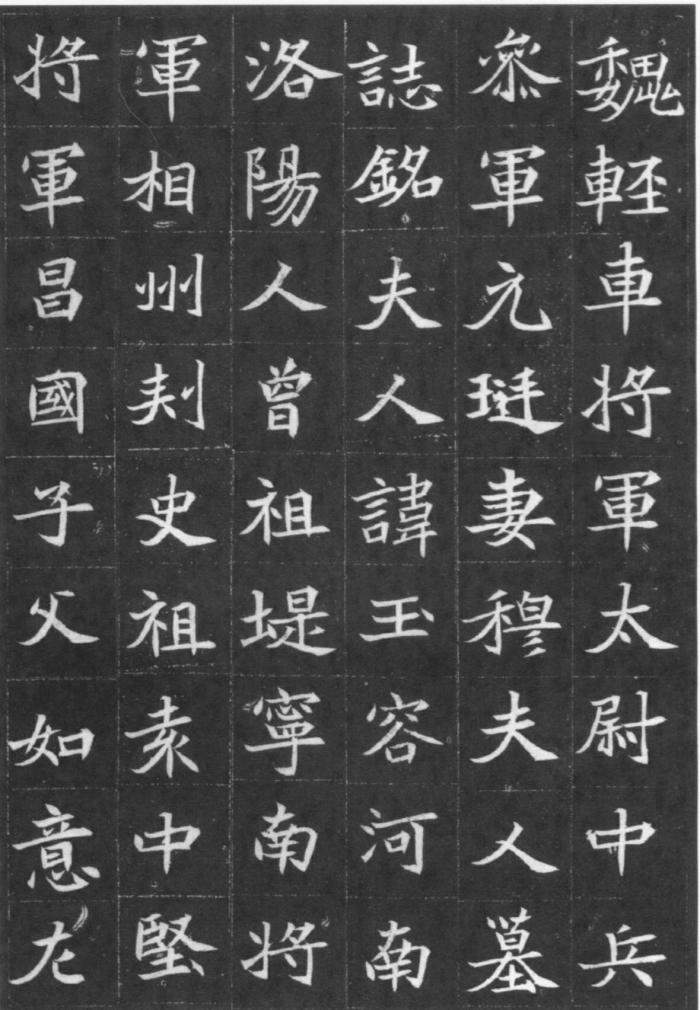 魏軽車将軍太尉中兵
叅軍元珽妻穆夫人墓
誌銘夫人諱玉容河南
洛陽人曾祖堤寧南将
軍相州刾史祖袁中堅
将軍昌國子父如意左